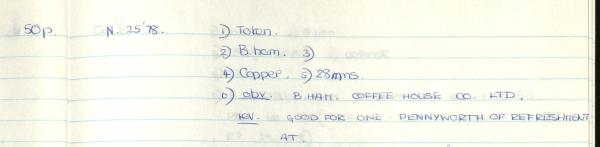 50p. N. 25'78. 1) Token.
2) B.ham. 3)
4) Copper. 5) 28mms.
6) obv. B.HAM. COFFEE HOUSE CO. LTD.
rev. GOOD FOR ONE - PENNYWORTH OF REFRESHMENT
AT.